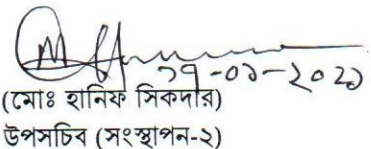 ১৭-০১-২০২১
(মোঃ হানিফ সিকদার)
উপসচিব (সংস্থাপন-২)